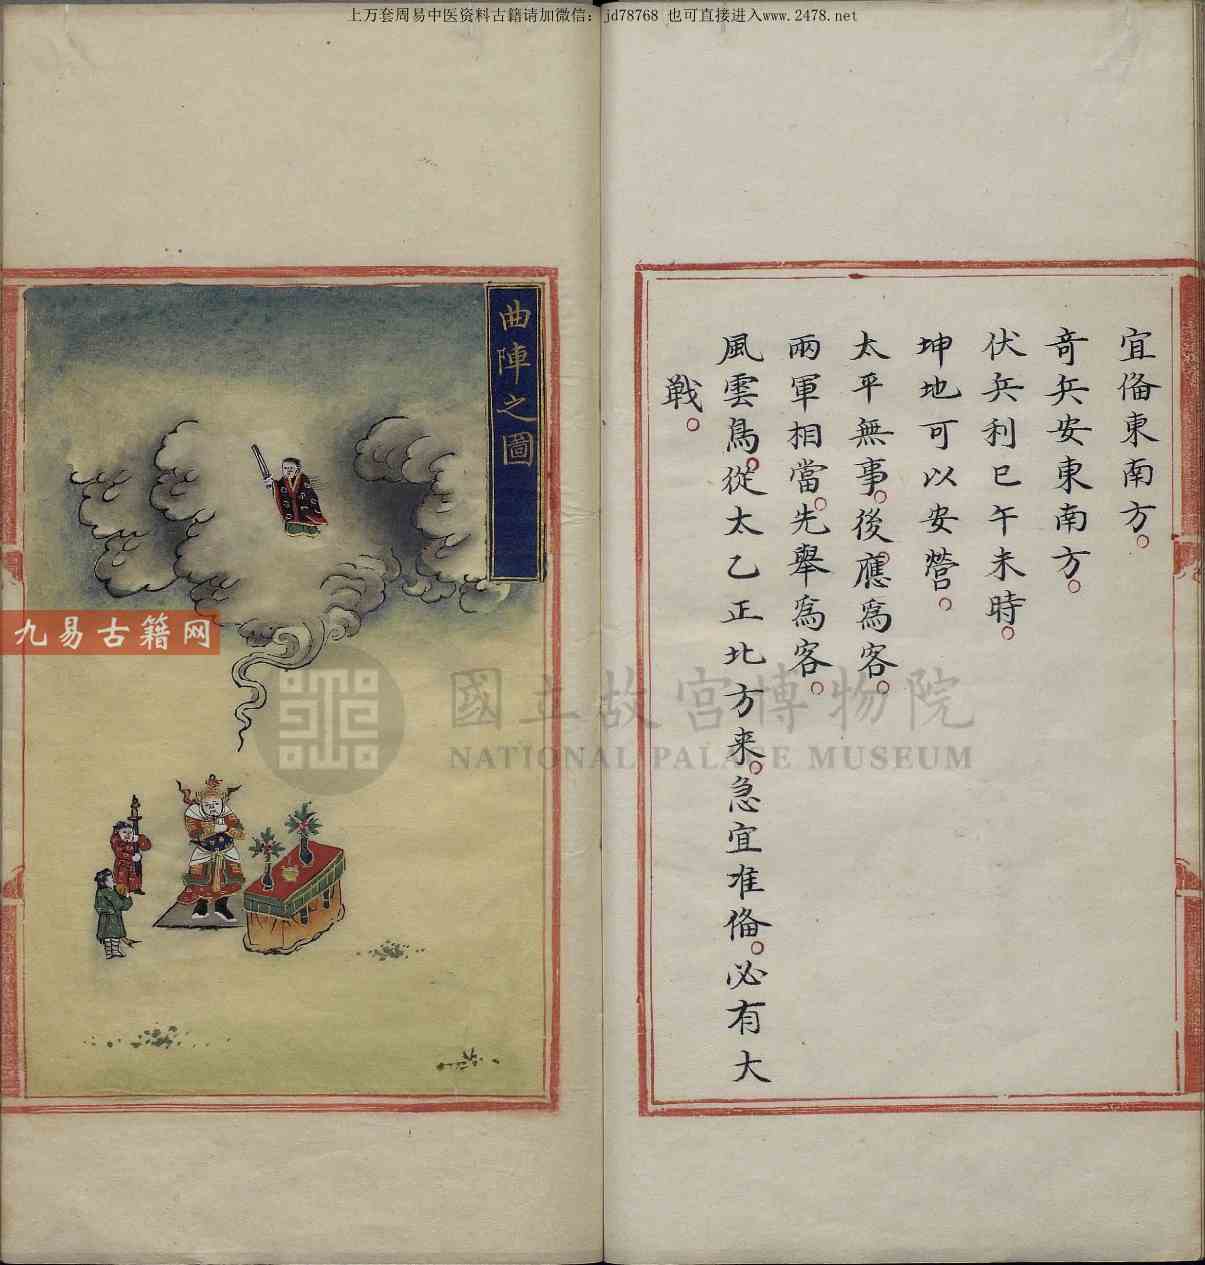 上万套周易中医资料古籍请加微信：jd78768 也可直接进入www.2478.net
宜俻東南方。
竒兵安東南方。
伏兵利巳午未時。
坤地可以安營。
太平無事。後應爲客。
兩軍相當。先舉爲客。
風雲鳥。從太乙正北方来。急宜准俻。必有大
戰。
曲陣之圖
九易古籍网
國立故宮博物院
NATIONAL PALACE MUSEUM